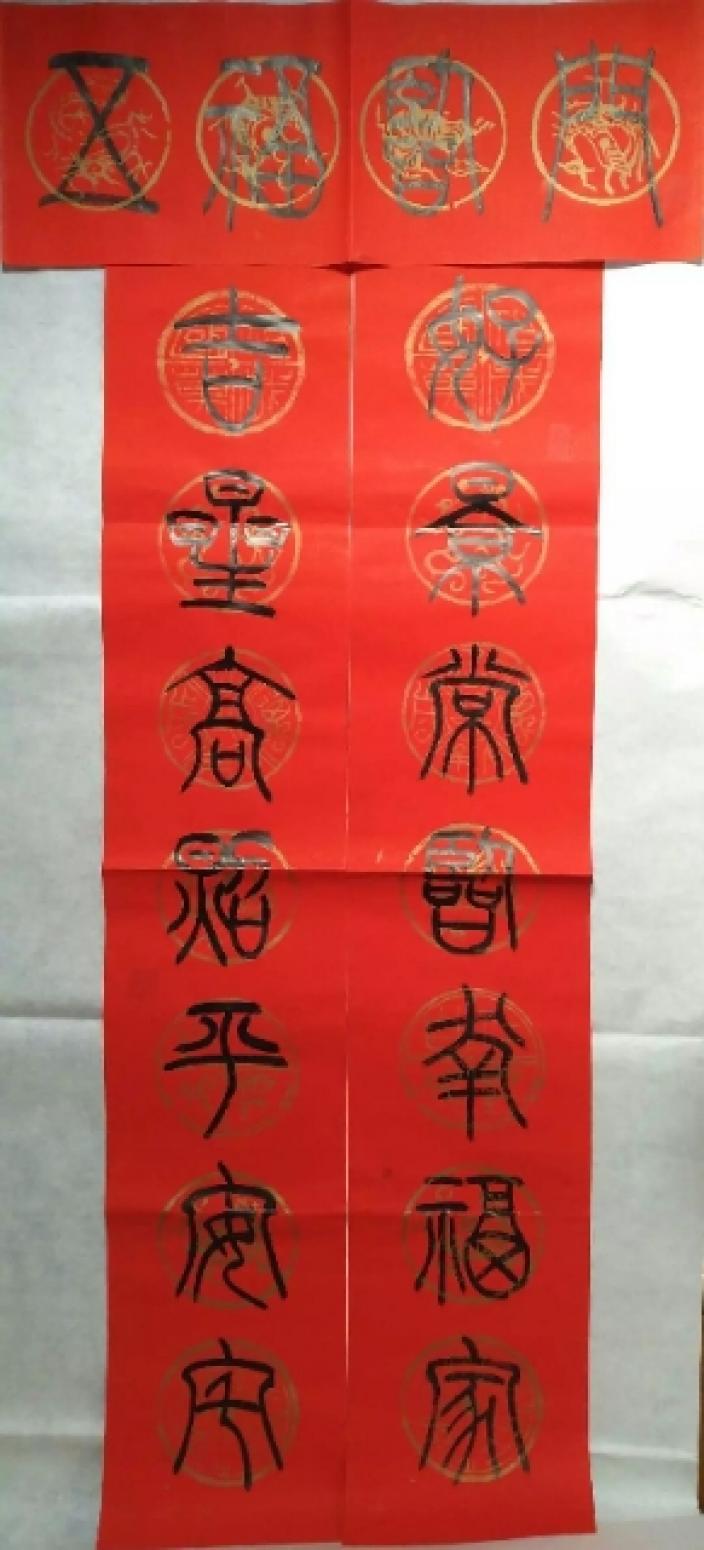 五福臨門
好景常臨幸福家
吉星高照平安宅